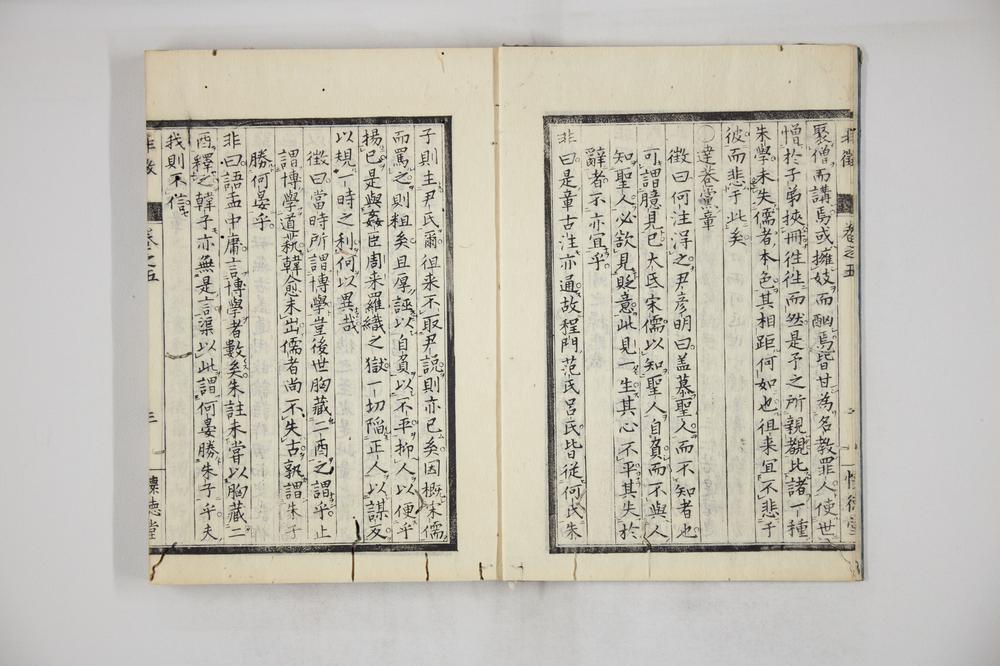 非徵
卷之五
聚僧而講焉或擁妓而酗焉皆甘為名教罪人使世
憎於子弟挾冊徃徃而然是予之所親覩比諸一種
朱學未失儒者本色其相距何如也徂来冝不悲于
彼而悲于此矣
○達巷黨章
徵曰何注淂之尹彦明曰盖慕聖人而不知者也
可謂臆見已大氐宋儒以知聖人自負而不與人
知聖人必欲見貶意此見一生其心不平其失於
辭者不亦冝乎
非曰是童古注亦通故程門范氏呂氏皆従何氏朱
子則主尹氏爾徂来不取尹說則亦已矣因概宋儒
而罵之則粗矣且厚誣以自負以不平抑人以便乎
揚已是與姦臣周来羅織之獄一切陥正人以謀反
以規一時之利何以異哉
徵曰當時所謂博學堂後世胸藏二酉之謂乎止
謂博學道藝韓愈未出儒者尚不失古孰謂朱子
勝何晏乎
非曰語孟中庸言博學者數矣朱註未嘗以胸藏二
酉釋之韓子亦無是言渠以此謂何晏勝朱子乎夫
我則不信
卷之五
三
懷德堂